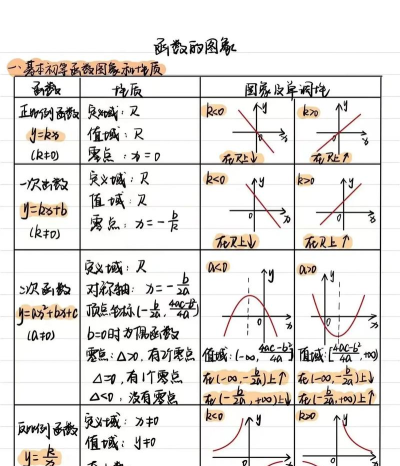 函数的图象
一、基本初等函数图象和性质
函数 性质 图象及单调性
正比例函数
y=kx
(k≠0)
定义域：R
值域：R
零点：x=0
k<0 y 0 x
在R上↓
k>0 y 0 x
在R上↑
一次函数
y=kx+b
(k≠0)
定义域：R
值域：R
零点：x=-b/k
k<0 y 0 x
在R上↓
k>0 y 0 x
在R上↑
二次函数
y=ax²+bx+c
(a≠0)
定义域：R
对称轴：x=-b/2a
顶点坐标(-b/2a, 4ac-b²/4a)
b=0时为偶函数
零点：△>0，有2个零点
△=0，有1个零点
△<0，没有零点
a<0 y 0 x
值域：(-∞, 4ac-b²/4a]
在(-∞,-b/2a)上↑
在(-b/2a,+∞)上↓
a>0 y 0 x
值域：[4ac-b²/4a,+∞)
在(-∞,-b/2a)上↓
在(-b/2a,+∞)上↑
反比例函数
y=k/x
定义域：x≠0
值域：y≠0
k<0 y
k>0 y